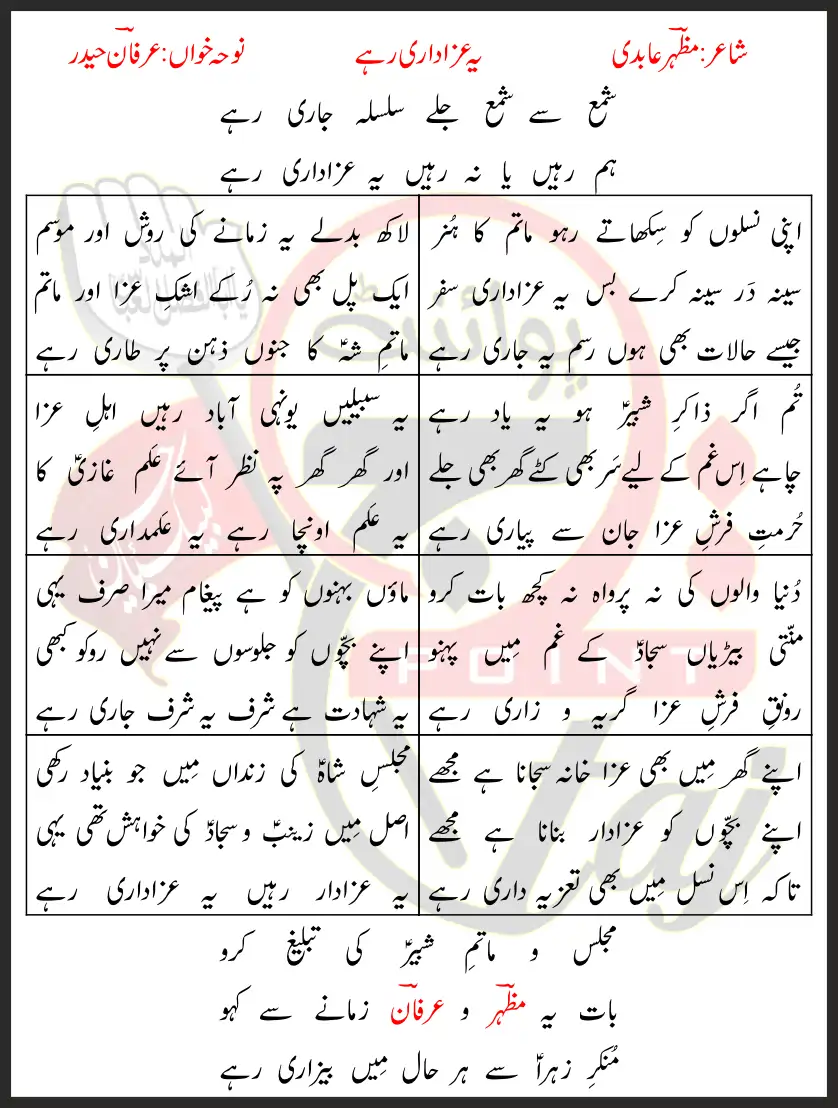 شاعر: مظہر عابدی یہ عزاداری رہے نوحہ خواں: عرفان حیدر
شمع سے شمع جلے سلسلہ جاری رہے
ہم رہیں یا نہ رہیں یہ عزاداری رہے
اپنی نسلوں کو سِکھاتے رہو ماتم کا ہُنر
سینہ دَر سینہ کرے بس یہ عزاداری سفر
جیسے حالات بھی ہوں رسم یہ جاری رہے
لاکھ بدلے یہ زمانے کی روش اور موسم
ایک پل بھی نہ رُکے اشکِ عزا اور ماتم
ماتمِ شہؑ کا جنوں ذہن پر طاری رہے
تُم اگر ذاکرِ شبیرؑ ہو یہ یاد رہے
چاہے اِس غم کے لیے سَر بھی کٹے گھر بھی جلے
حُرمتِ فرشِ عزا جان سے پیاری رہے
یہ سبیلیں یونہی آباد رہیں اہلِ عزا
اور گھر گھر پہ نظر آئے عَلم غازیؑ کا
یہ عَلم اونچا رہے یہ عَلمداری رہے
دُنیا والوں کی نہ پرواہ نہ کچھ بات کرو
منّتی بیڑیاں سجادؑ کے غم مِیں پہنو
رونقِ فرشِ عزا گریہ و زاری رہے
ماؤں بہنوں کو ہے پیغام میرا صرف یہی
اپنے بچّوں کو جلوسوں سے نہیں روکو کبھی
یہ شہادت ہے شرف یہ شرف جاری رہے
اپنے گھر مِیں بھی عزا خانہ سجانا ہے مجھے
اپنے بچّوں کو عزادار بنانا ہے مجھے
تاکہ اِس نسل مِیں بھی تعزیہ داری رہے
مجلسِ شاہؑ کی زنداں مِیں جو بنیاد رکھی
اصل مِیں زینبؑ و سجادؑ کی خواہش تھی یہی
یہ عزادار رہیں یہ عزاداری رہے
مجلس و ماتمِ شبیرؑ کی تبلیغ کرو
بات یہ مظہر و عرفان زمانے سے کہو
مُنکرِ زہراؑ سے ہر حال مِیں بیزاری رہے
POINT
taj